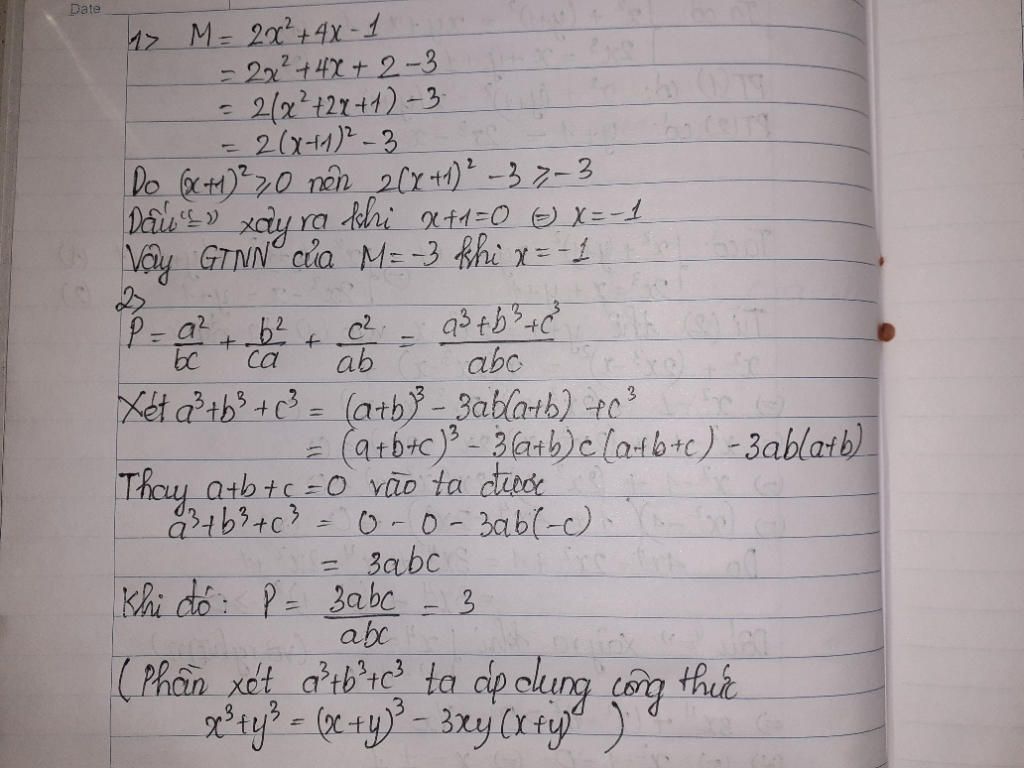 Date
1> M = 2x² + 4x - 1
= 2x² + 4x + 2 - 3
= 2(x² + 2x + 1) - 3
= 2(x+1)² - 3
Do (x+1)² ⩾ 0 nên 2(x+1)² - 3 ⩾ -3
Dấu "=" xảy ra khi x+1=0 ⇔ x = -1
Vậy GTNN của M = -3 khi x = -1
2>
P = a²/bc + b²/ca + c²/ab = a³+b³+c³/abc
Xét a³+b³+c³ = (a+b)³ - 3ab(a+b) + c³
= (a+b+c)³ - 3(a+b)c(a+b+c) - 3ab(a+b)
Thay a+b+c = 0 vào ta được
a³+b³+c³ = 0 - 0 - 3ab(-c)
= 3abc
Khi đó: P = 3abc/abc = 3
(Phần xét a³+b³+c³ ta áp dụng công thức
x³+y³ = (x+y)³ - 3xy(x+y) )